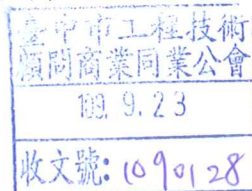 臺中市工程技術
顧問商業同業公會
109. 9. 23
收文號: 1090128